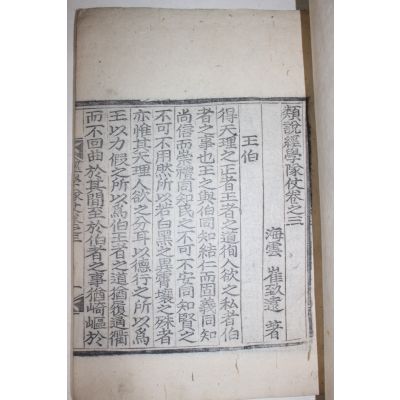 類說經學隊仗卷之三
海雲 崔致遠 著
王伯
得天理之正者王者之道徇人欲之私者伯
者之事也王之與伯同知結仁而固義同知
尚信而崇禮同知民之不可不安同知賢之
不可不用然所以若白黑之異霄壤之殊者
亦惟其天理人欲之分耳以德行之所以爲
王以力假之所以爲伯王者之道猶履通衢
而不回曲於其間至於伯者之事猶崎嶇於